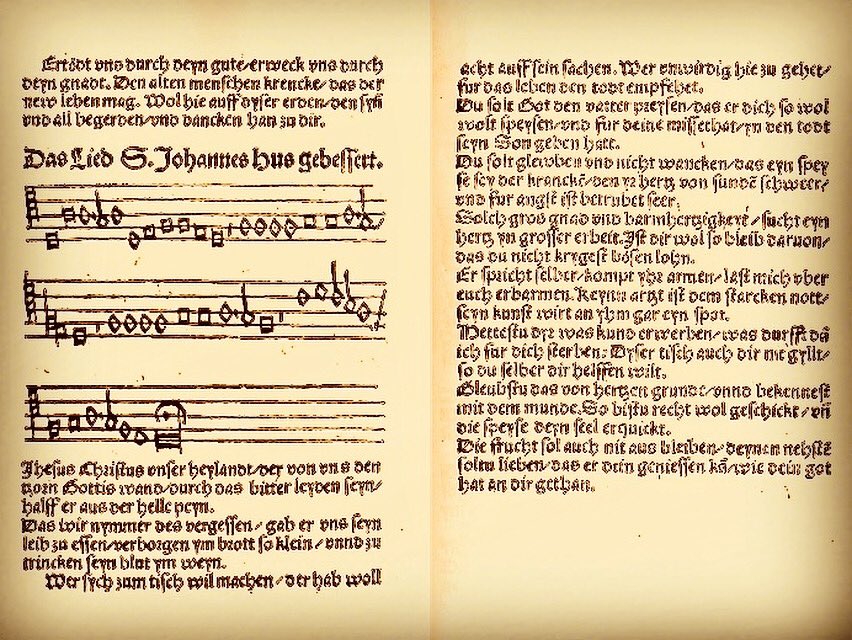 Ertödt vns durch deyn gute/erweck vns durch
deyn gnadt. Den alten menschen krencke/das der
new leben mag. Wol hie auff dyser erden/den syn
vnd all begerden/vnd dancken han zu dir.
Das Lied S. Johannes Hus gebessert.
Jhesus Christus vnser heylandt/der von vns den
tzorn Gottis wand/durch das bitter leyden seyn/
halff er aus der helle peyn.
Das wir nymmer des vergessen/ gab er vns seyn
leib zu essen/verborgen ym brott so klein/vnnd zu
trincken seyn blut ym weyn.
Wer sych zum tisch wil machen/der hab woll
acht auff sein sachen. Wer vnwirdig hie zu gehet/
fur das leben den todt empfehet.
Du solt Got den vatter preysen/das er dich so wol
wolt speysen/vnd fur deine missethat/yn den todt
seyn Son geben hatt.
Du solt glewben vnd nicht wancken/das eyn spey
se sey der kranckē/den yr hertz von sundē schweer/
vnd fur angst ist betrubet seer.
Solch gros gnad vnd barmhertzigkeyt/ sucht eyn
hertz yn grosser erbeit. Ist dir wol so bleib daruon/
das du nicht krygest bösen lohn.
Er spricht selber/kompt yhr armen/last mich vber
euch erbarmen. Keynn artzt ist dem starcken nott/
seyn kunst wirt an yhm gar eyn spot.
Hettestu dyr was kund erwerben/was durfft dā
ich fur dich sterben: Dyser tisch auch dir nit gyllt/
so du selber dir helffen wilt.
Gleubstu das von hertzen grundt/vnnd bekennest
mit dem munde. So bistu recht wol geschickt/vñ
die speyse deyn seel erquickt.
Die frucht sol auch nit aus bleiben/deynen nehstē
soltu lieben/das er dein geniessen kā/wie dein got
hat an dir gethan.